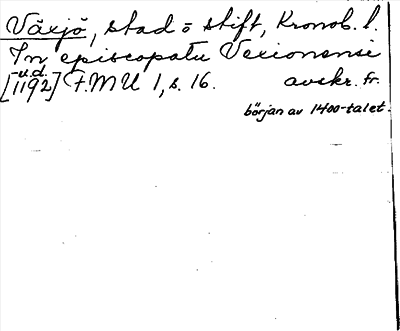 Växjö, stad o stift, Kronob. l.
In episcopatu Vexionensi
u.d.
[1192] F.M U 1, s. 16. avskr. fr.
början av 1400-talet.